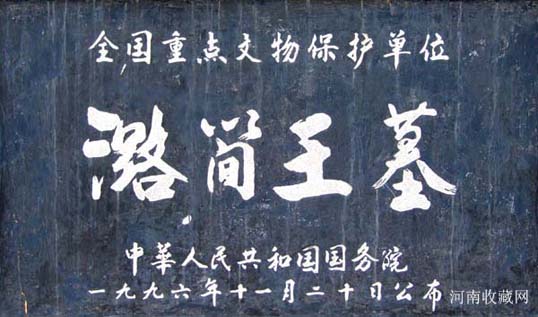 全国重点文物保护单位
潞简王墓
中華人民共和国国务院
一九九六年十一月二十日公布
河南收藏网